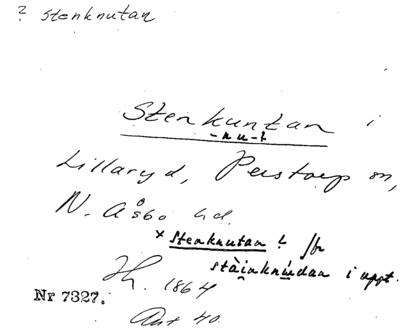 ? Stenknutan
Stenkuntan i
-nu-t
Lillaryd, Perstorp sn,
N. Åsbo hd.
× stenknutan ? jfr
stàinknúdan i uppt.
H. 1864
Nr 7327.
Ant 40.